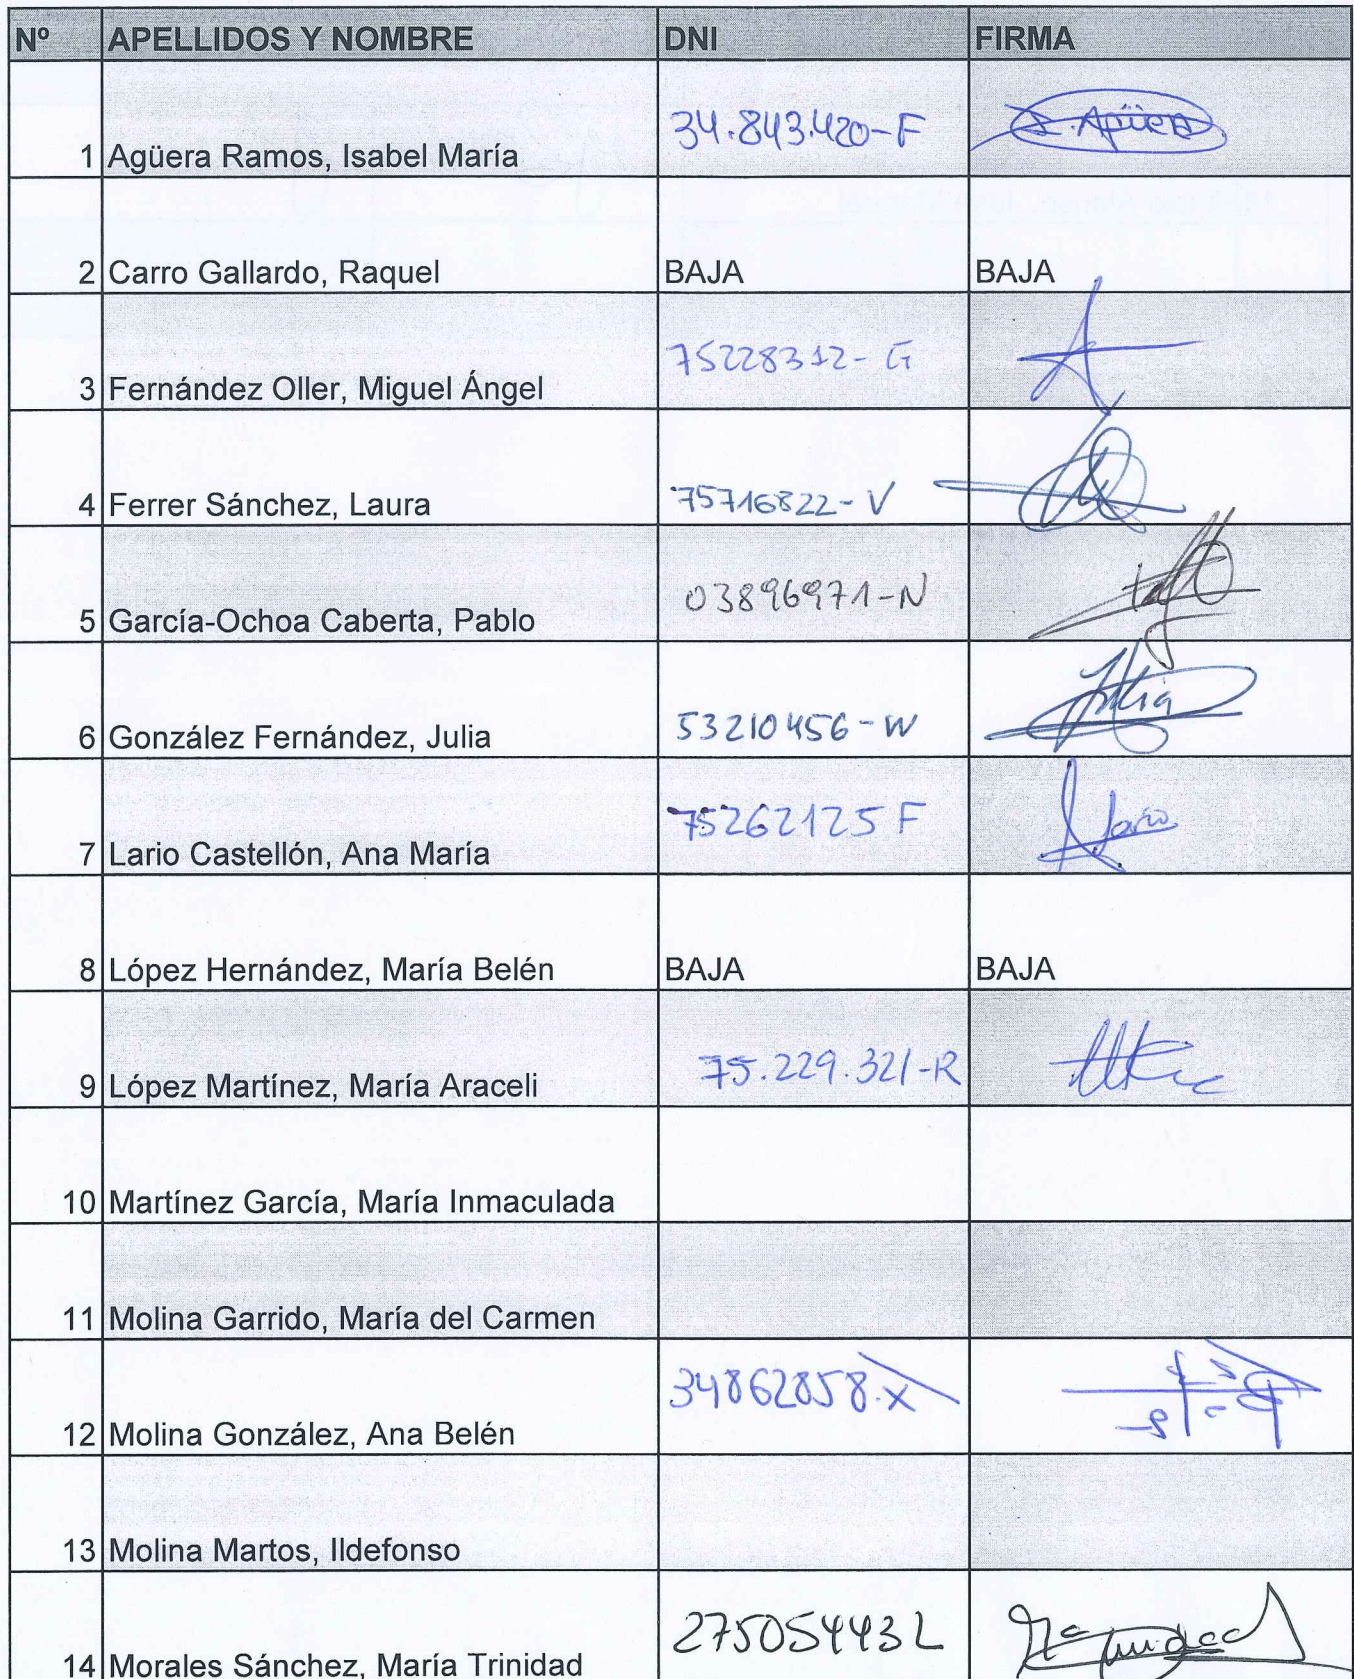 Nº APELLIDOS Y NOMBRE DNI FIRMA
1 Agüera Ramos, Isabel María 34.843.420-F I. Agüera
2 Carro Gallardo, Raquel BAJA BAJA
3 Fernández Oller, Miguel Ángel 75228312-G
4 Ferrer Sánchez, Laura 75716822-V
5 García-Ochoa Caberta, Pablo 03896971-N
6 González Fernández, Julia 53210456-W Julia
7 Lario Castellón, Ana María 75262125F Lario
8 López Hernández, María Belén BAJA BAJA
9 López Martínez, María Araceli 75.229.321-R
10 Martínez García, María Inmaculada
11 Molina Garrido, María del Carmen
12 Molina González, Ana Belén 34862858.X
13 Molina Martos, Ildefonso
14 Morales Sánchez, María Trinidad 27505443L